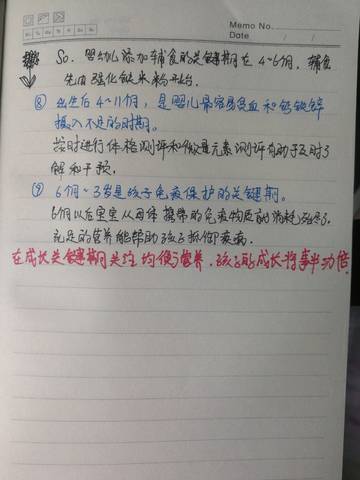 Memo No.
Date / /
So. 婴幼儿添加辅食的关键期在4~6个月，辅食
先由强化铁米粉开始.
⑧ 出生后4~11个月，是婴儿最容易贫血和钙铁锌
摄入不足的时期。
按时进行体格测评和微量元素测评有助于及时了
解和干预.
⑨ 6个月~3岁是孩子免疫保护的关键期。
6个月以后宝宝从母体携带的免疫物质的消耗殆尽了.
充足的营养能帮助孩子抵御疾病.
在成长关键期关注均衡营养，孩子的成长将事半功倍.